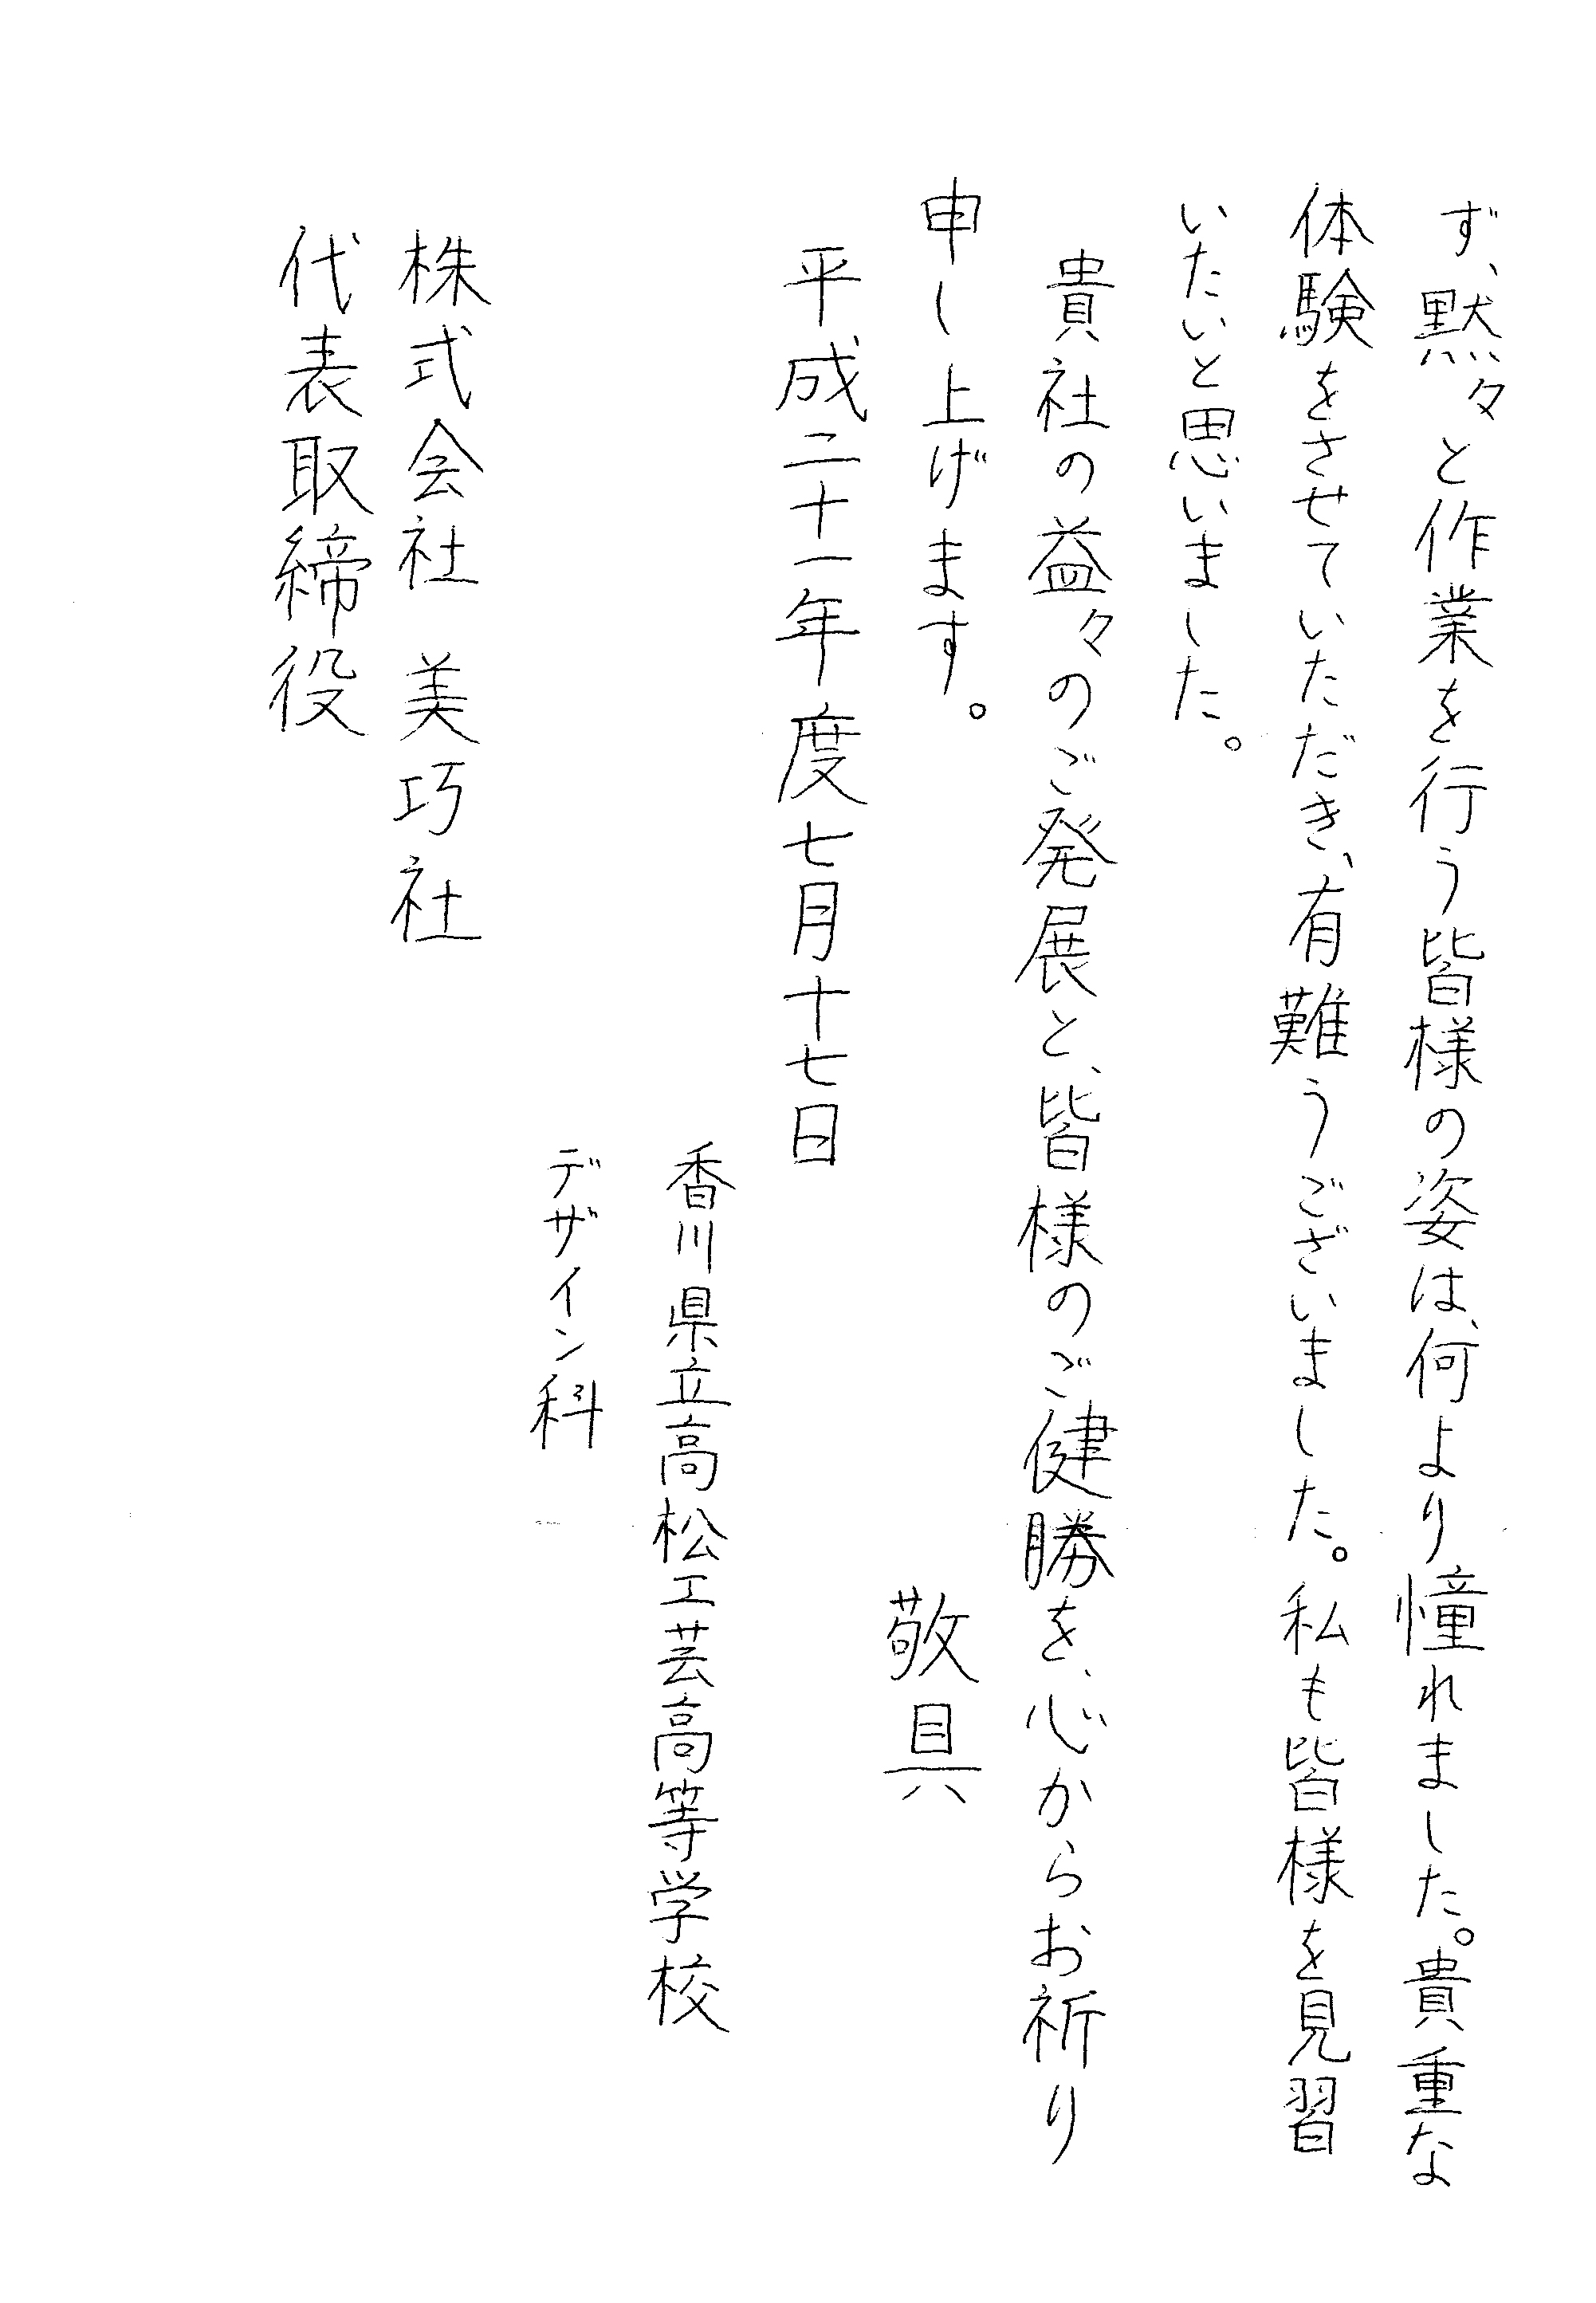 ず、黙々と作業を行う皆様の姿は、何より憧れました。貴重な
体験をさせていただき、有難うございました。私も皆様を見習
いたいと思いました。
貴社の益々のご発展と、皆様のご健勝を、心からお祈り
申し上げます。
敬具
平成二十一年度七月十七日
香川県立高松工芸高等学校
デザイン科
株式会社 美巧社
代表取締役